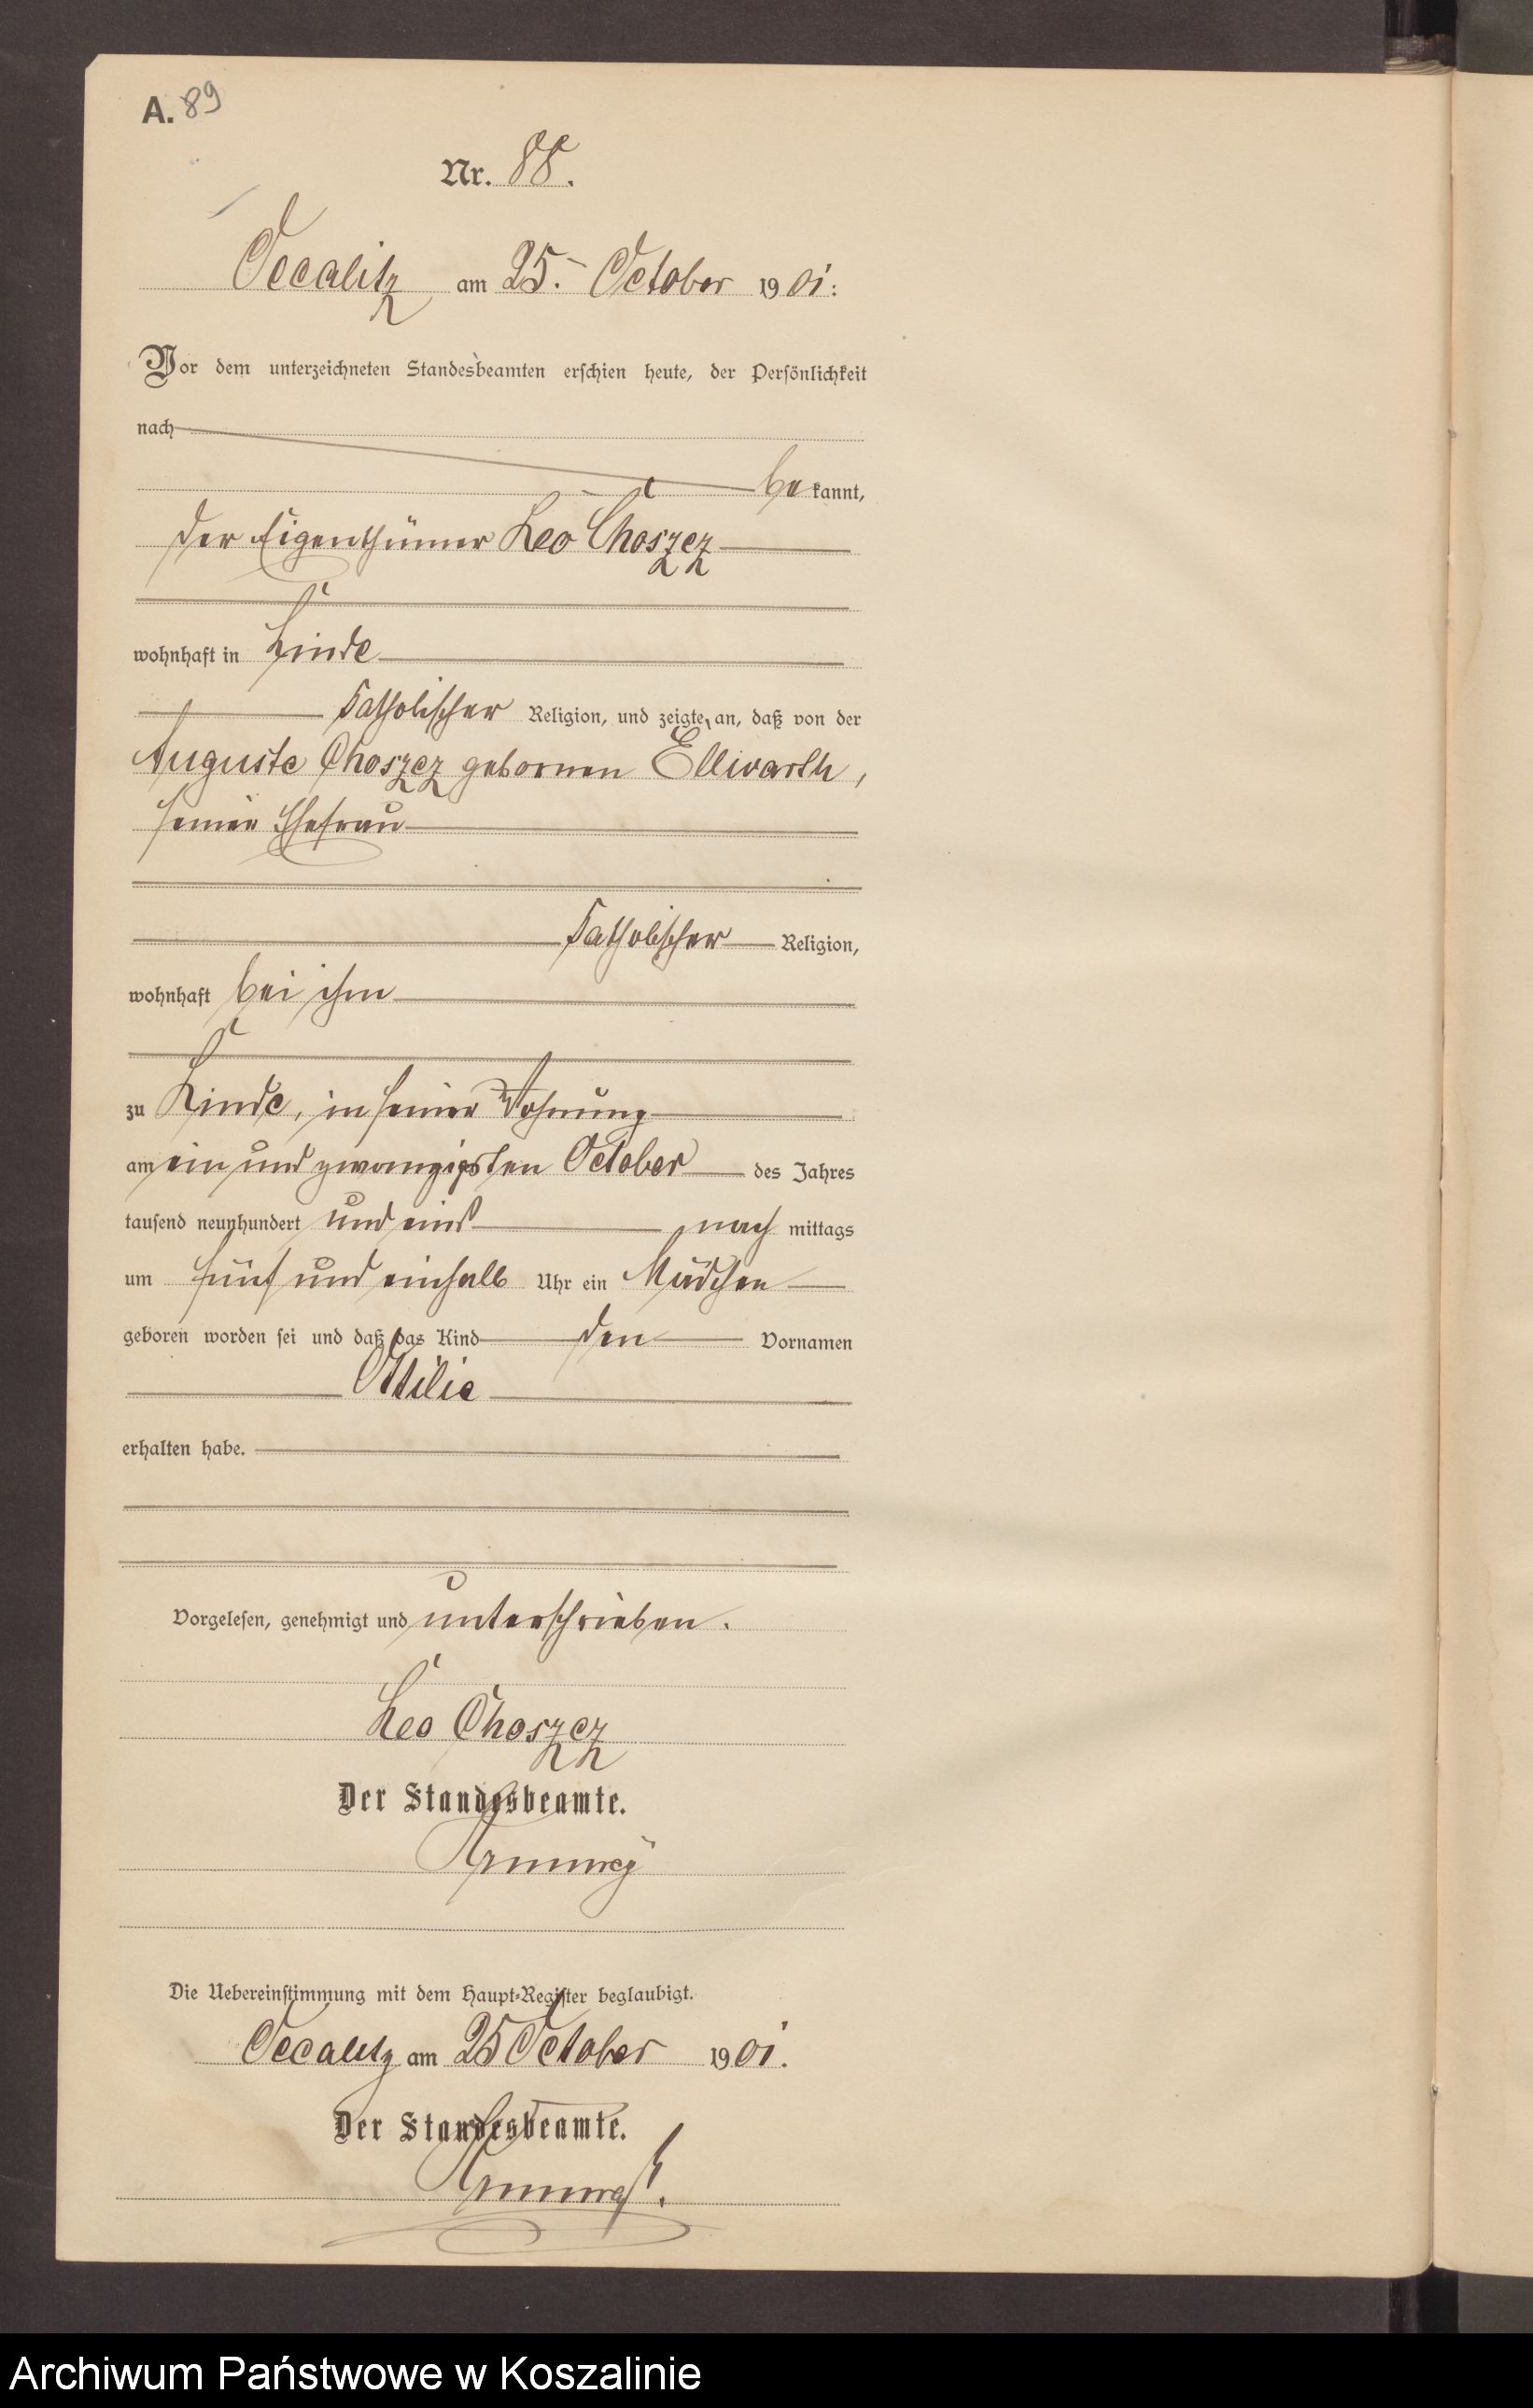 A. 89
Nr. 88.
Occalitz am 25. October 1901.
Vor dem unterzeichneten Standesbeamten erschien heute, der Persönlichkeit
nach
bekannt,
der Eigenthümer Leo Choszcz
wohnhaft in Linde
katholischer Religion, und zeigte an, daß von der
Auguste Choszcz gebornen Ellwarth,
seiner Ehefrau
katholischer Religion,
wohnhaft bei ihm
zu Linde, in seiner Wohnung
am ein und zwanzigsten October des Jahres
tausend neunhundert und eins nach mittags
um fünf und einhalb Uhr ein Mädchen
geboren worden sei und daß das Kind den Vornamen
Ottilie
erhalten habe.
Vorgelesen, genehmigt und unterschrieben.
Leo Choszcz
Der Standesbeamte.
Die Uebereinstimmung mit dem Haupt-Register beglaubigt.
Occalitz am 25 October 1901.
Der Standesbeamte.
Archiwum Państwowe w Koszalinie